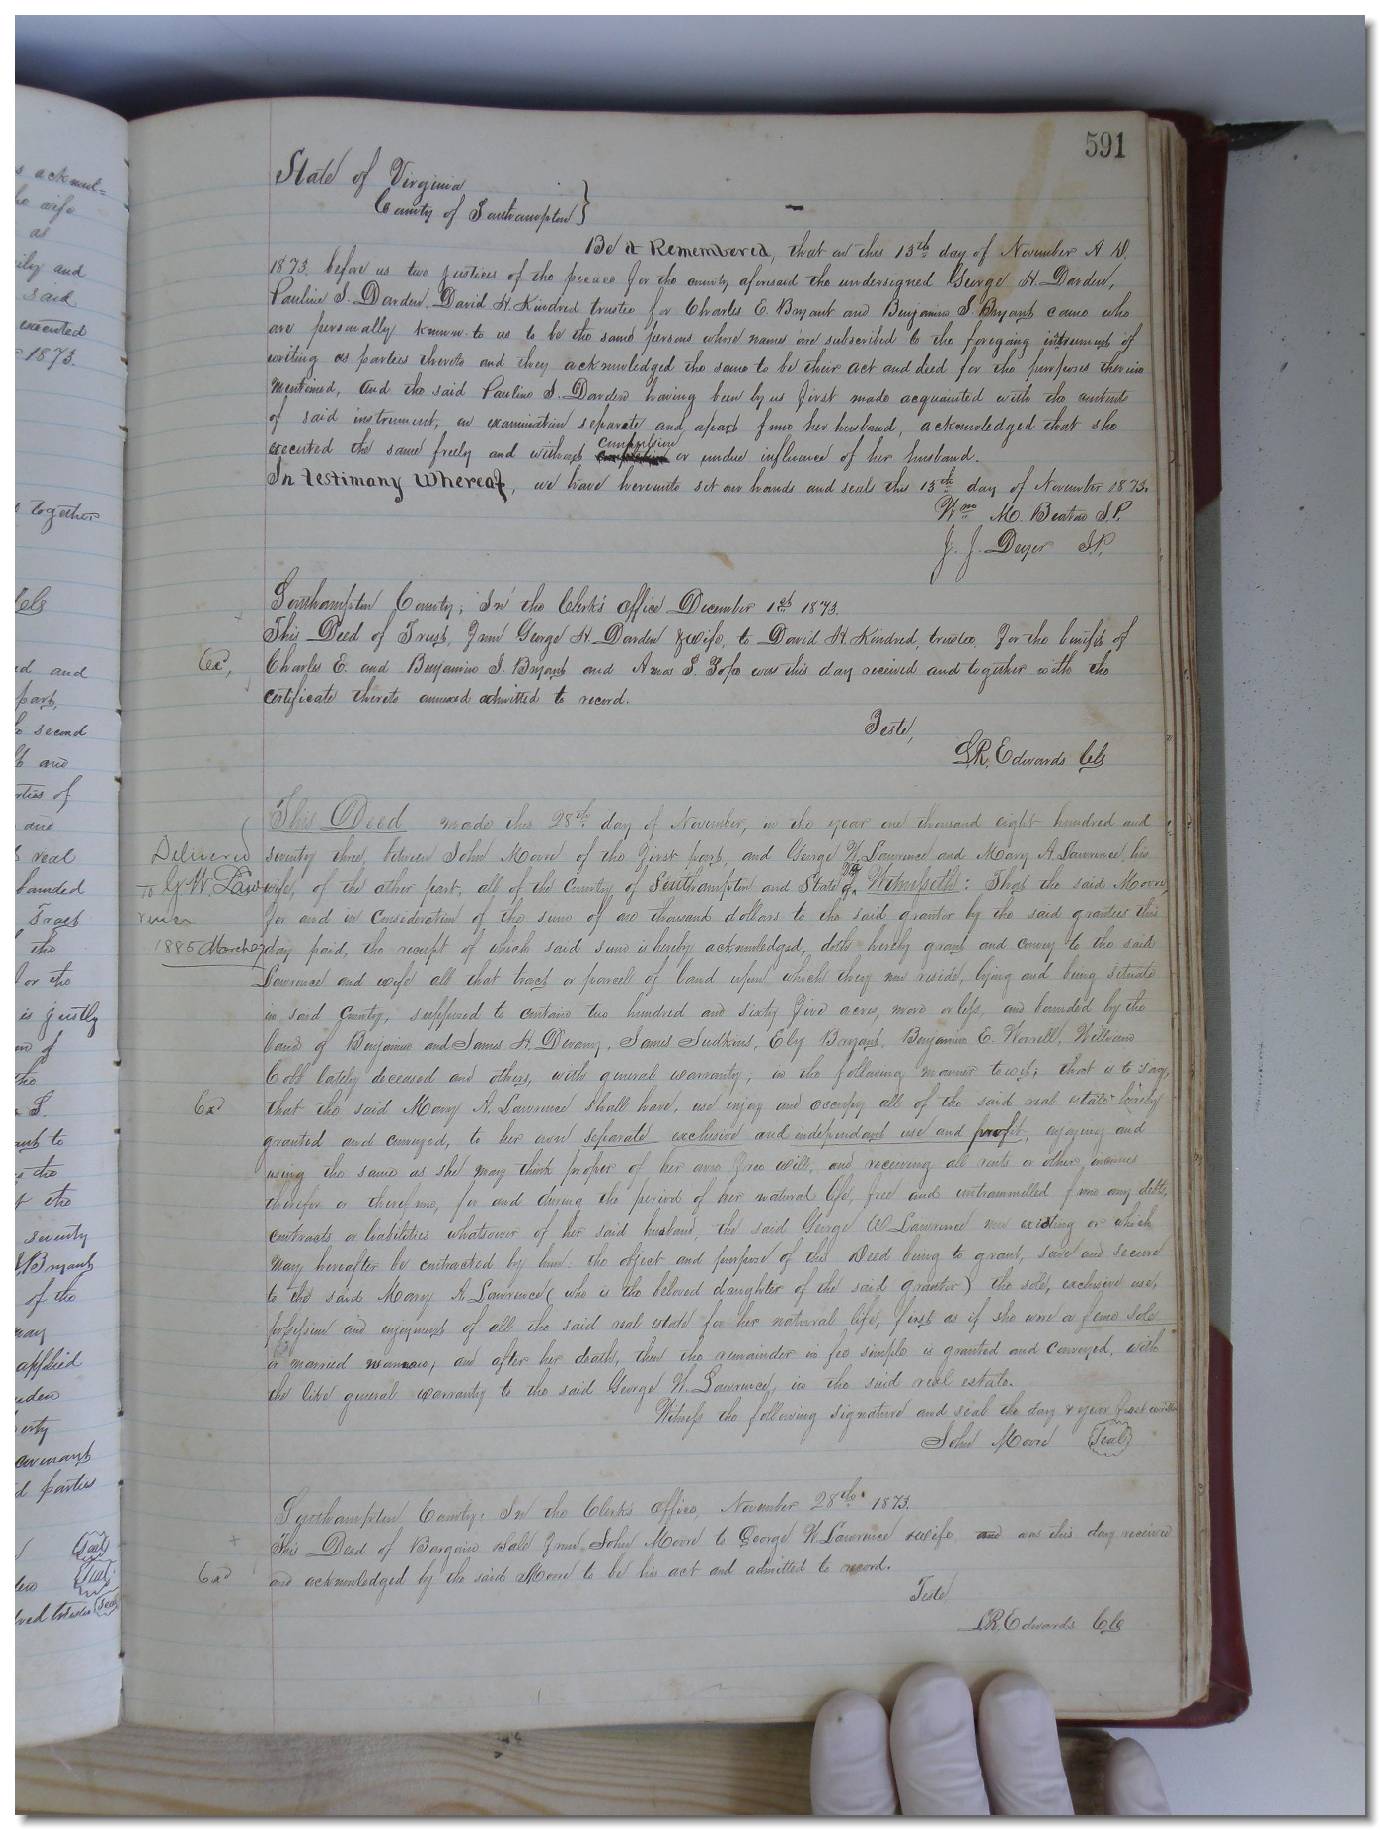 591
State of Virginia
County of Southampton }
Be it Remembered, that on this 13th day of November A D.
1873. before us two justices of the peace for the county aforesaid the undersigned George H. Darden,
Pauline S. Darden. David H. Kindred trustee for Charles E. Bryant and Benjamin S. Bryant came who
are personally known to us to be the same persons whose names are subscribed to the foregoing instrument of
writing as parties thereto and they acknowledged the same to be their act and deed for the purposes therein
mentioned, and the said Pauline S. Darden having been by us first made acquainted with the contents
of said instrument, on examination separate and apart from her husband, acknowledged that she
executed the same freely and without compulsion or undue influence of her husband.
In testimony Whereof, we have hereunto set our hands and seals this 13th day of November 1873.
Wm M. Beaton J.P.
J. J. Deyer J.P.
Southampton County; In the Clerk's Office December 1st 1873.
This Deed of Trust, from George H. Darden & wife, to David H. Kindred, trustee, for the benefit of
Exd, Charles E. and Benjamin S. Bryant and was this day received and together with the
certificate thereto annexed admitted to record.
Teste,
L.R. Edwards Clk
This Deed made this 28th day of November, in the year one thousand eight hundred and
Delivered seventy three, between John Moore of the first part, and George W. Lawrence and Mary A. Lawrence, his
to G. W. Law wife, of the other part, all of the County of Southampton and State of Va Witnesseth: That the said Moore,
rence for and in Consideration of the sum of one thousand dollars to the said grantor by the said grantees this
1885 March day paid, the receipt of which said sum is hereby acknowledged, doth hereby grant and convey to the said
Lawrence and wife all that tract or parcell of land upon which they now reside, lying and being situate
in said County, supposed to contain two hundred and sixty five acres, more or less, and bounded by the
land of Benjamin and James H. James Judkins, Ely Bryant, Benjamin E. Worrell, William
Cobb lately deceased and others, with general warranty, in the following manner towit; that is to say,
Exd that the said Mary A. Lawrence shall have, use enjoy and occupy all of the said real estate hereby
granted and conveyed, to her own separate exclusive and independant use and profit, enjoying and
using the same as she may think proper of her own free will, and receiving all rents or other incomes
therefor or therefrom, for and during the period of her natural life, free and untrammelled from any debts,
contracts or liabilities whatsoever of her said husband, the said George W Lawrence now existing or which
may hereafter be contracted by him. the object and purpose of this Deed being to grant, save and secure
to the said Mary A Lawrence (who is the beloved daughter of the said grantor) the sole, exclusive use,
possession and enjoyment of all the said real estate for her natural life, just as if she were a feme sole
a married woman; and after her death, then the remainder in fee simple is granted and conveyed, with
the like general warranty to the said George W. Lawrence, in the said real estate.
Witness the following signature and seal the day & year first written
John Moore (Seal)
Southampton County: In the Clerk's Office, November 28th 1873.
This Deed of Bargain Sale from John Moore to George W. Lawrence & wife and was this day received
Exd and acknowledged by the said Moore to be his act and admitted to record.
Teste
L.R. Edwards Clk